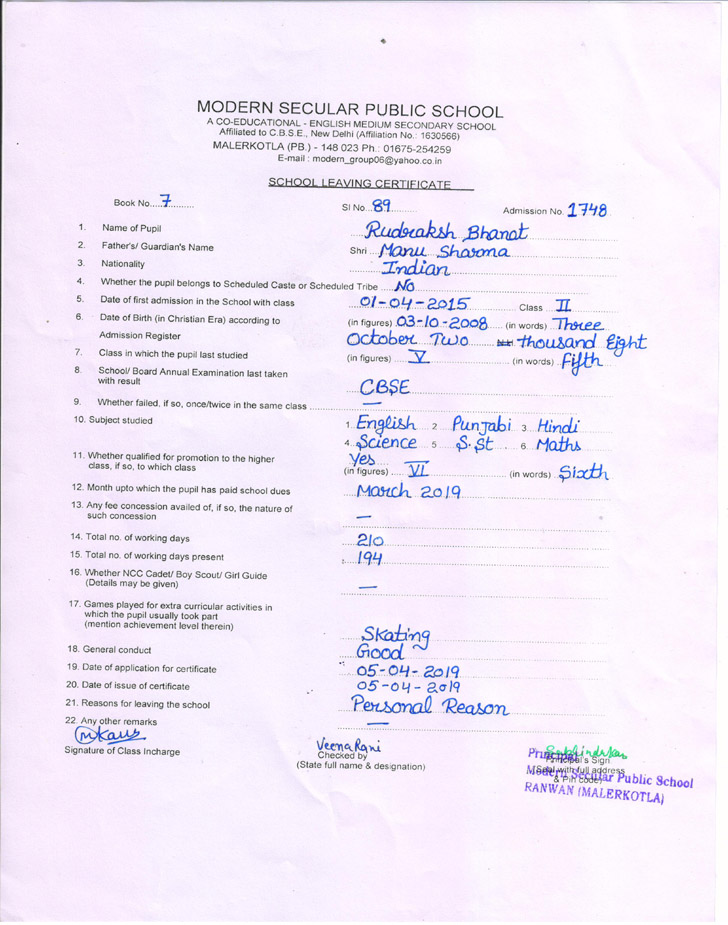 MODERN SECULAR PUBLIC SCHOOL
A CO-EDUCATIONAL - ENGLISH MEDIUM SECONDARY SCHOOL
Affiliated to C.B.S.E., New Delhi (Affiliation No.: 1630566)
MALERKOTLA (PB.) - 148 023 Ph.: 01675-254259
E-mail : modern_group06@yahoo.co.in
SCHOOL LEAVING CERTIFICATE
Book No. 7 Sl No. 89 Admission No. 1748
1. Name of Pupil Rudraksh Bhanot
2. Father's/ Guardian's Name Shri Manu Sharma
3. Nationality Indian
4. Whether the pupil belongs to Scheduled Caste or Scheduled Tribe No
5. Date of first admission in the School with class 01-04-2015 Class II
6. Date of Birth (in Christian Era) according to (in figures) 03-10-2008 (in words) Three
Admission Register October Two thousand Eight
7. Class in which the pupil last studied (in figures) V (in words) Fifth
8. School/ Board Annual Examination last taken
with result CBSE
9. Whether failed, if so, once/twice in the same class —
10. Subject studied 1. English 2 Punjabi 3. Hindi
4. Science 5 S.St 6. Maths
11. Whether qualified for promotion to the higher Yes
class, if so, to which class (in figures) VI (in words) Sixth
12. Month upto which the pupil has paid school dues March 2019
13. Any fee concession availed of, if so, the nature of
such concession —
14. Total no. of working days 210
15. Total no. of working days present 194
16. Whether NCC Cadet/ Boy Scout/ Girl Guide
(Details may be given) —
17. Games played for extra curricular activities in
which the pupil usually took part
(mention achievement level therein) Skating
18. General conduct Good
19. Date of application for certificate 05-04-2019
20. Date of issue of certificate 05-04-2019
21. Reasons for leaving the school Personal Reason
22. Any other remarks —
Mkaur Veena Rani
Signature of Class Incharge Checked by Principal's Sign
(State full name & designation) Seal with full address
& Pin code
Principal
Modern Secular Public School
RANWAN (MALERKOTLA)